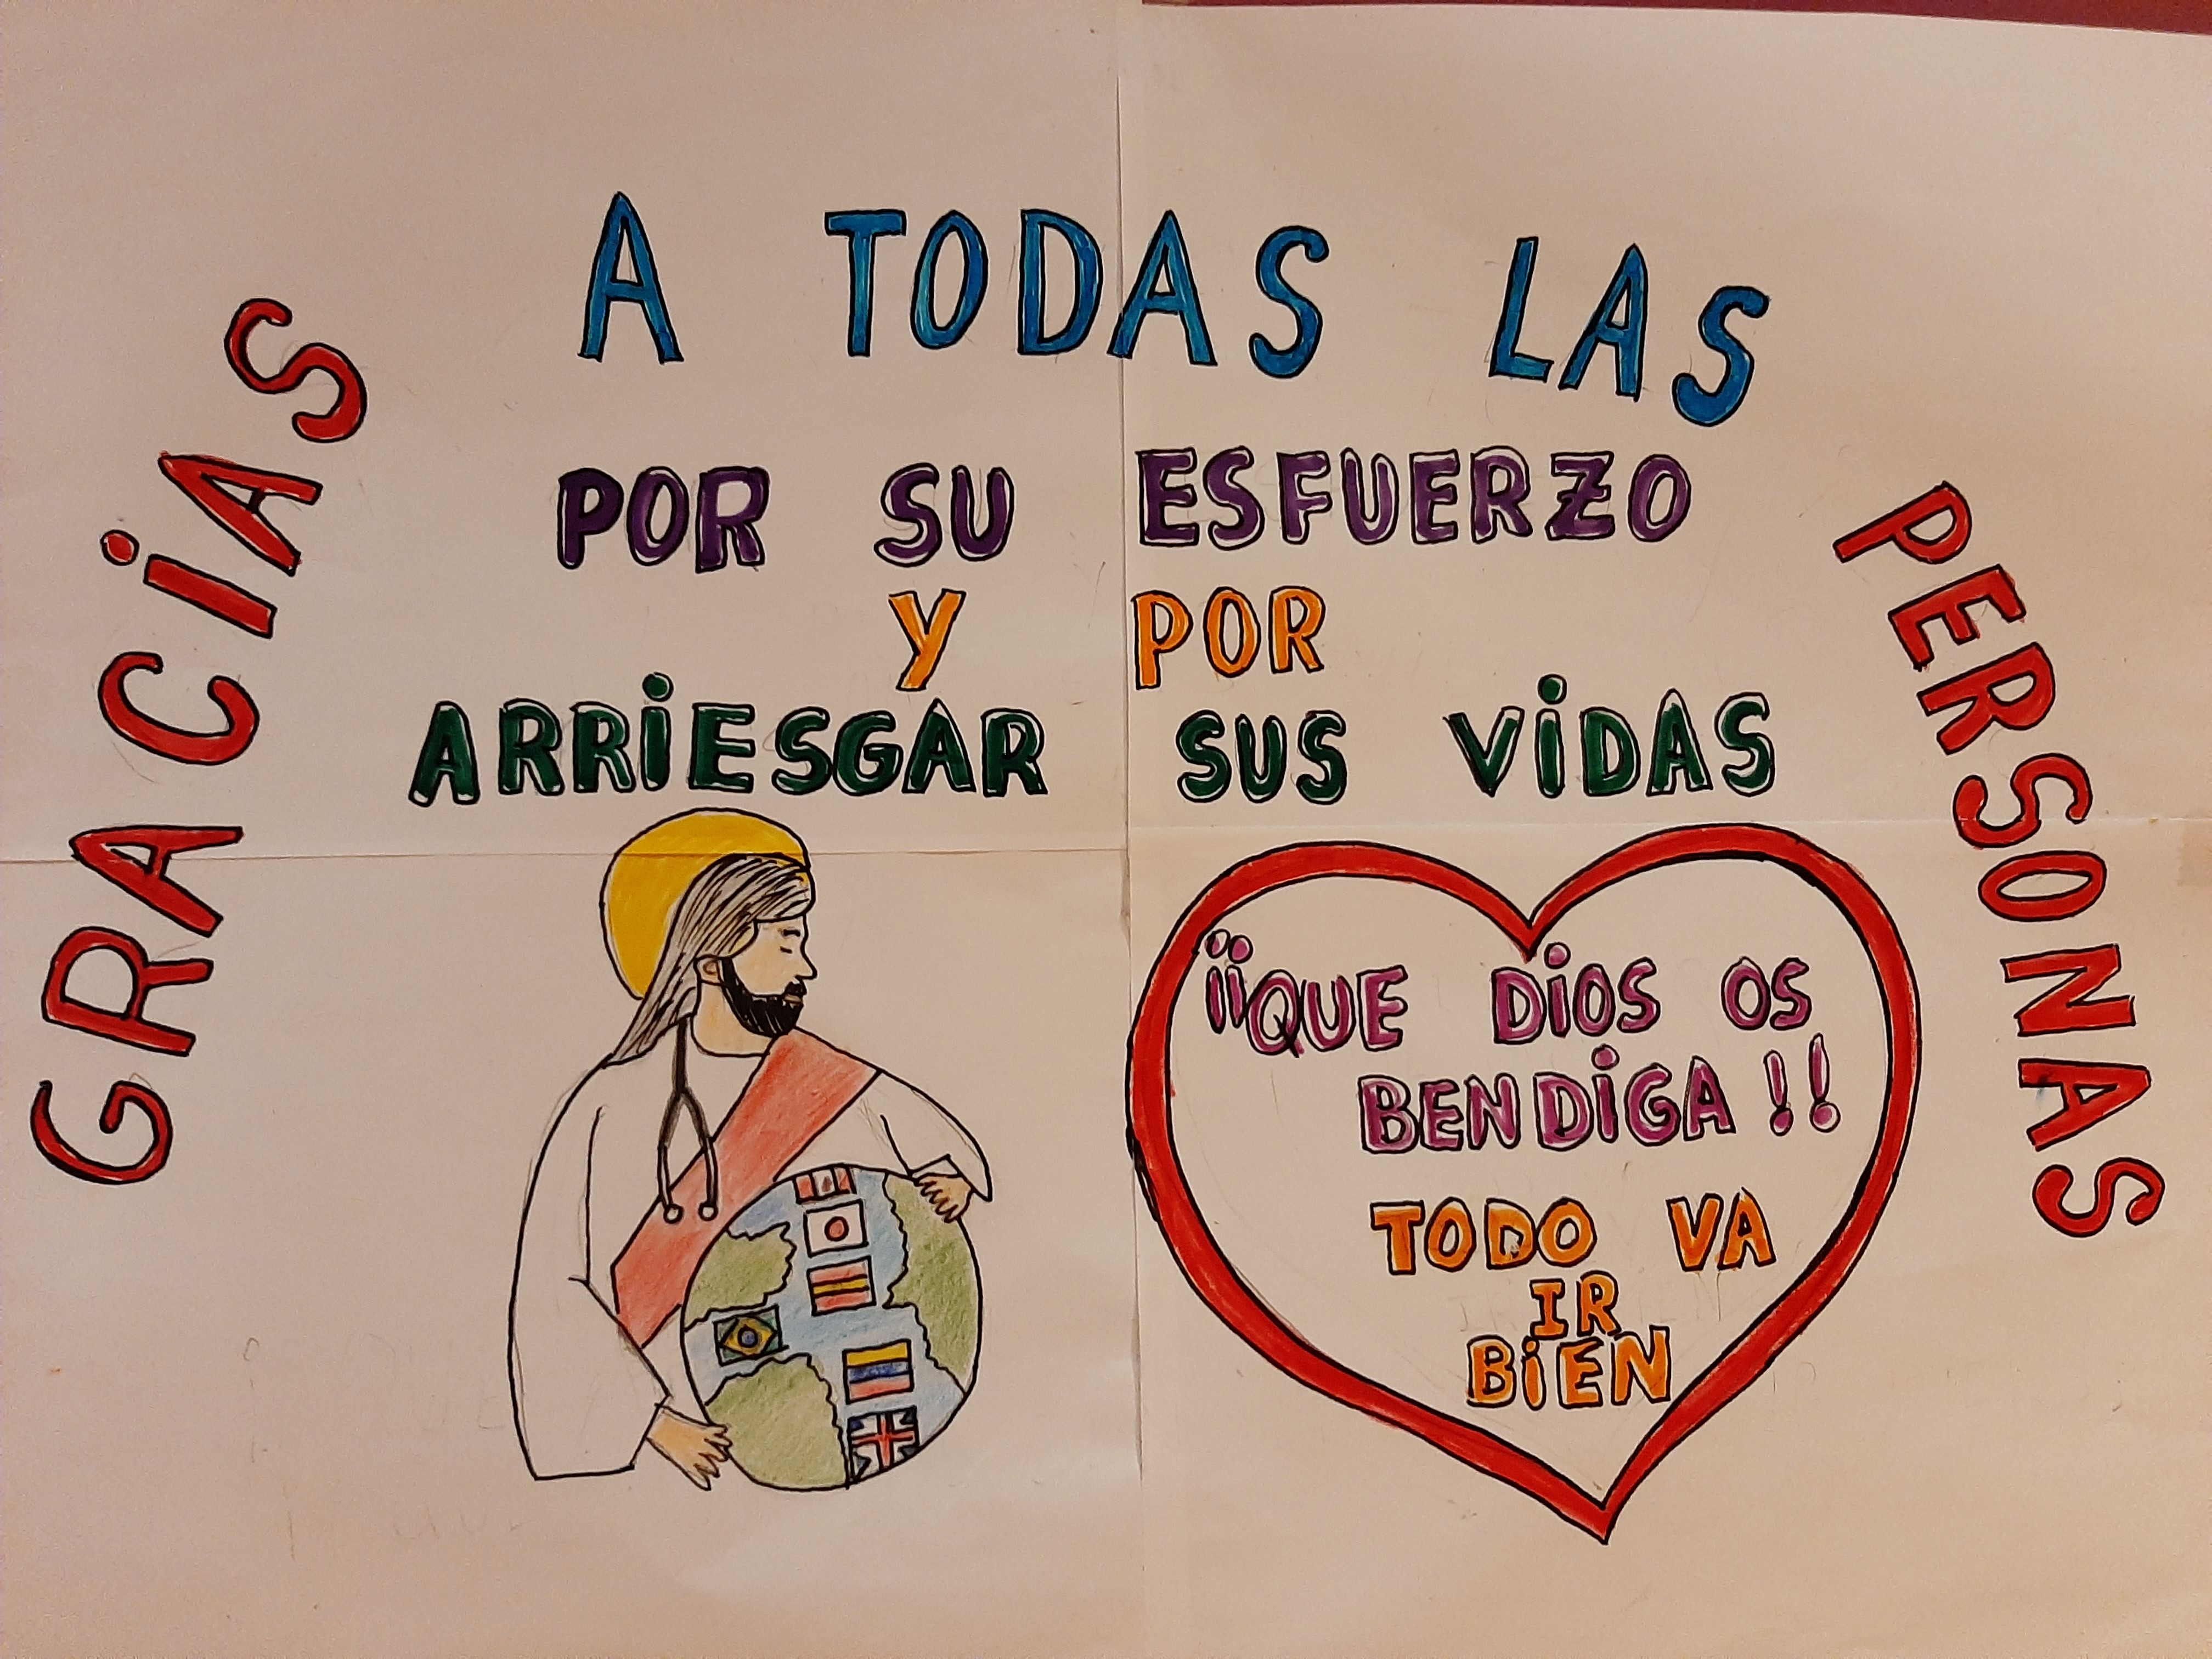 GRACIAS
A TODAS LAS
PERSONAS
POR SU ESFUERZO
Y POR
ARRIESGAR SUS VIDAS
¡¡QUE DIOS OS
BENDIGA!!
TODO VA
IR
BIEN